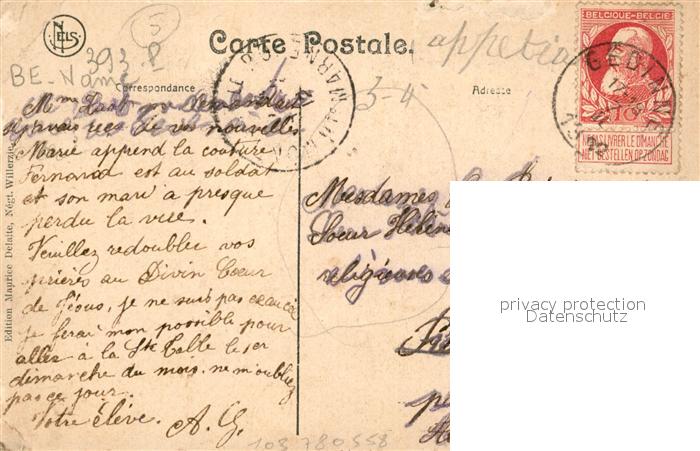 NELS
5
393 P
BE-Namé
Carte Postale.
appetia
BELGIQUE-BELGIË
GEDINNE
10
1912
NE PAS LIVRER LE DIMANCHE
NIET BESTELLEN OP ZONDAG
Correspondance
Adresse
MARNE
3-4
Mme
demandait
de vos nouvelles
Marie apprend la couture,
Fernand est au soldat
et son mari a presque
perdu la vue.
Veuillez redoubler vos
prières au Divin Coeur
de Jésus, je ne suis pas exaucée
Je ferai mon possible pour
aller à la Ste Table le 1er
dimanche du mois. ne m'oubliez
pas ce jour.
Votre élève. A. G.
Mesdames
Soeur Hélène
religieuses
Edition Maurice Delaite, Négt. Willerzie
privacy protection
Datenschutz
103 780 558